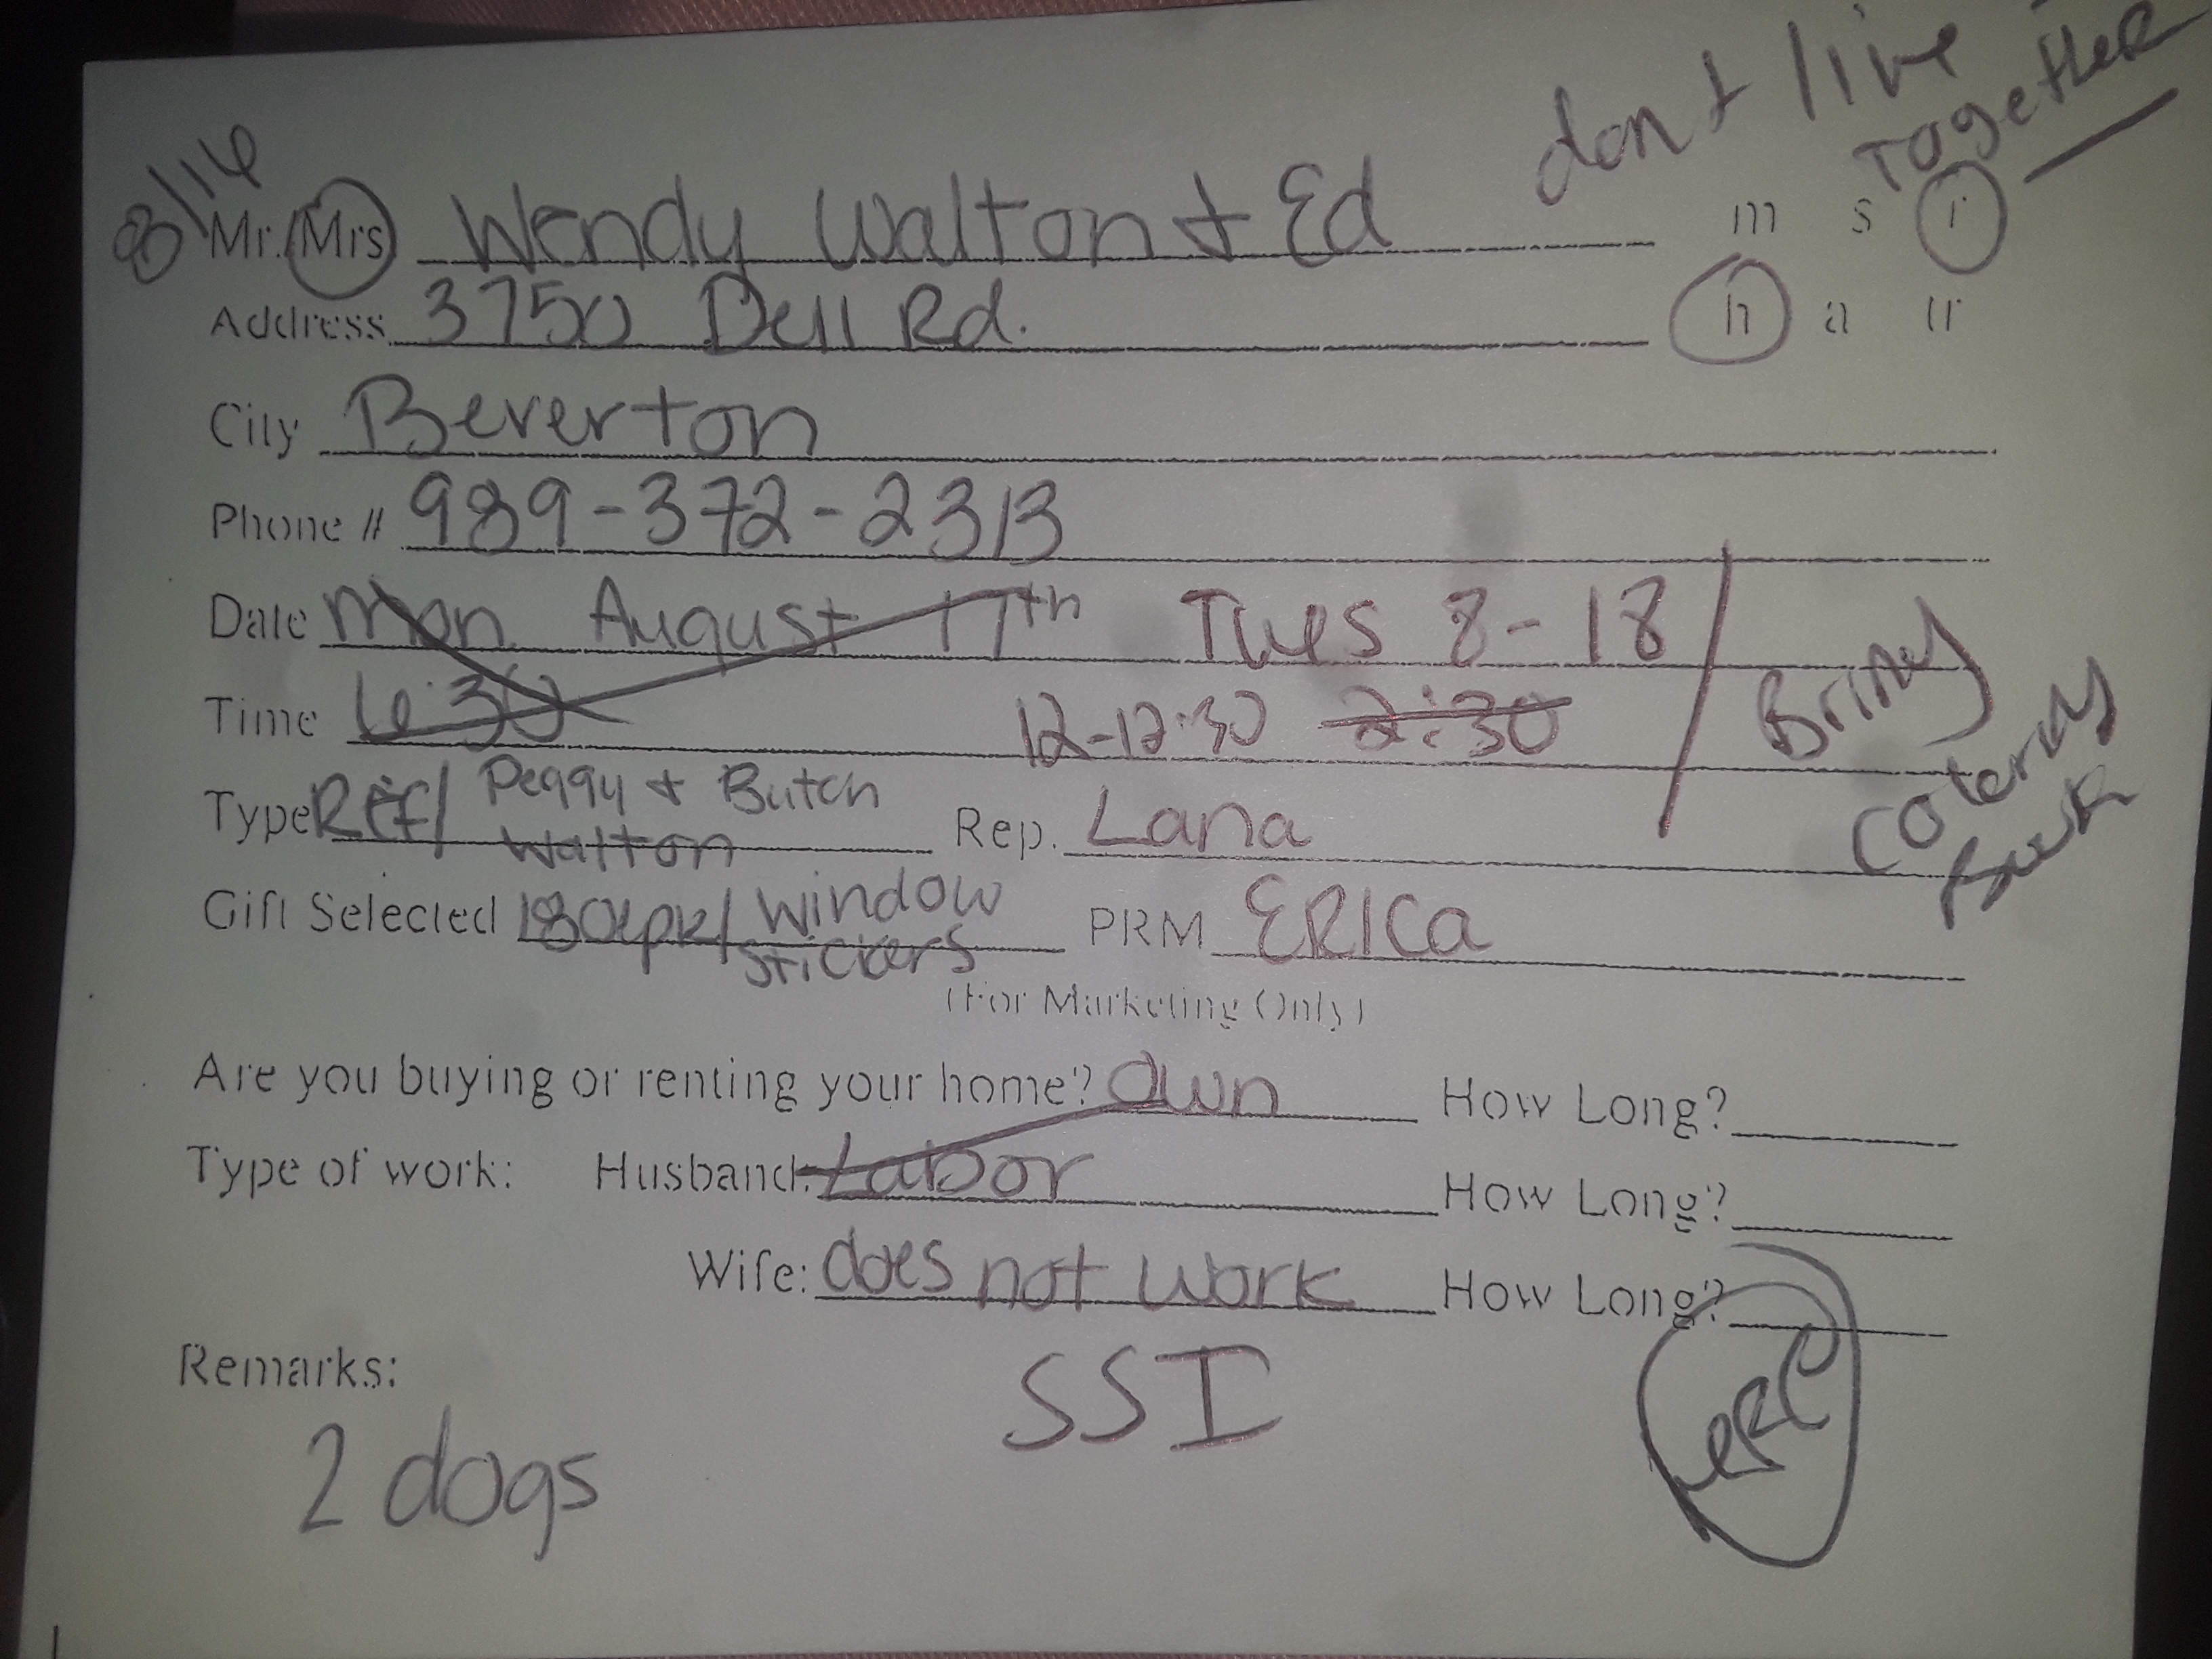 don't live
Together
8/16
Mr./Mrs Wendy Walton + Ed m s r
Address 3750 Dell Rd. h a u
City Beverton
Phone # 989-372-2313
Date Mon. August 17th Tues 8-18
Time 6:30 12-12:30 2:30
Bring
Type Ref/ Peggy + Butch
Walton Rep. Lana
Gift Selected window
stickers PRM ERICa
(For Marketing Only)
Are you buying or renting your home? Own How Long?
Type of work: Husband: Labor How Long?
Wife: does not work How Long?
Remarks: SSI
2 dogs